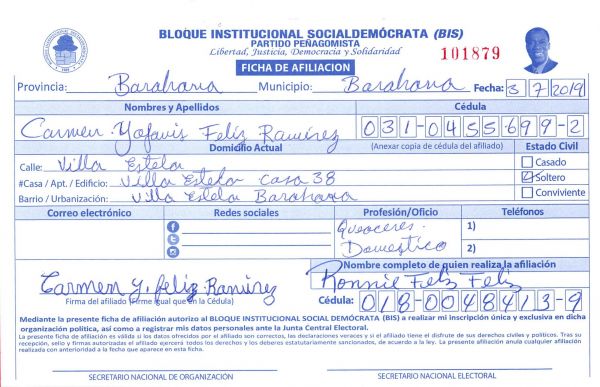 BLOQUE INSTITUCIONAL SOCIALDEMÓCRATA (BIS)
PARTIDO PEÑAGOMISTA
Libertad, Justicia, Democracia y Solidaridad
101879
FICHA DE AFILIACION
Provincia: Barahona Municipio: Barahona Fecha: 3 7 2019
Nombres y Apellidos Cédula
Carmen Yofavis Feliz Ramírez 031-0455699-2
Domicilio Actual (Anexar copia de cédula del afiliado) Estado Civil
Calle: Villa Estela Casado
#Casa / Apt. / Edificio: Villa Estela Casa 38 Soltero
Barrio / Urbanización: Villa Estela Barahona Conviviente
Correo electrónico Redes sociales Profesión/Oficio Teléfonos
Queaceres 1)
Domestico 2)
Nombre completo de quien realiza la afiliación
Carmen Y. feliz Ramirez Ronnie Feliz Feliz
Firma del afiliado (Firme igual que en la Cédula) Cédula: 018-0048413-9
Mediante la presente ficha de afiliación autorizo al BLOQUE INSTITUCIONAL SOCIALDEMÓCRATA (BIS) a realizar mi inscripción única y exclusiva en dicha
organización política, así como a registrar mis datos personales ante la Junta Central Electoral.
La presente ficha de afiliación es válida si los datos ofrecidos por el afiliado son correctos, las declaraciones veraces y si el afiliado tiene el disfrute de sus derechos civiles y políticos. Tras su
recepción, sello y firmas autorizadas el afiliado ejercerá todos los derechos y los deberes estatutariamente sancionados, de acuerdo a la ley. La presente afiliación anula cualquier afiliación
realizada con anterioridad a la fecha que aparece en esta ficha.
SECRETARIO NACIONAL DE ORGANIZACIÓN SECRETARIO NACIONAL ELECTORAL